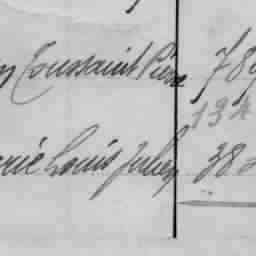 Toussaint Pierre 78
134
Louis Julien 38